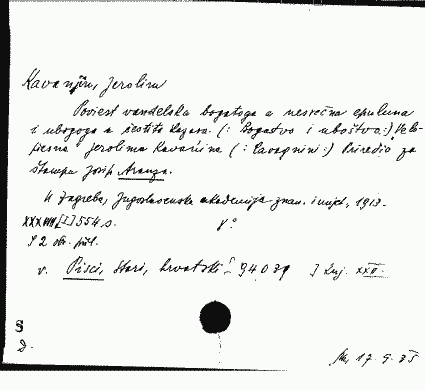 Kavanjin, Jerolim
Poviest vandelska bogatoga a nesrećna epuluna
i ubogoga a čestita Lazara. (: Bogatvo i uboštvo:) Vele-
piesna Jerolima Kavańina (: Cavagnini:) Priredio za
štampu Josip Aranza.
U Zagrebu, Jugoslavenska akademija znan. i umjet., 1913.
XXXVIII [I] 554 s. 8°
S 2 obr. pril.
v. Pisci, stari, hrvatski 94039 Knj. XXII.
S
D.
17. 9. 35